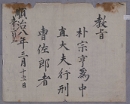 教旨
朴宗亨爲中
直大夫行刑
曹佐郎者
順治八年三月十二日